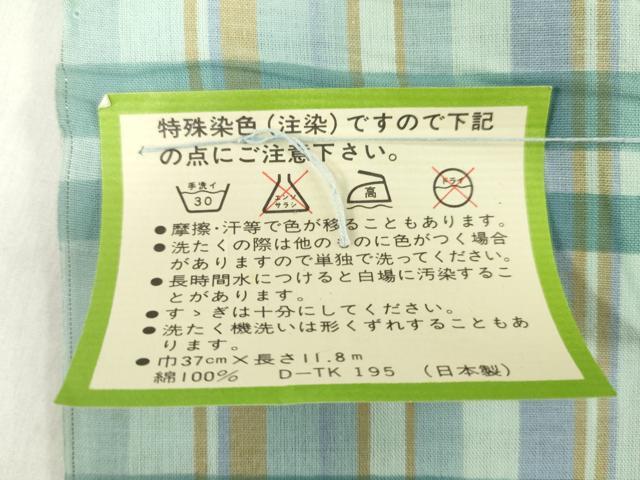 特殊染色(注染)ですので下記
の点にご注意下さい。
手洗イ
30
エンソ
サラシ
高
ドライ
●摩擦・汗等で色が移ることもあります。
●洗たくの際は他のものに色がつく場合
がありますので単独で洗ってください。
●長時間水につけると白場に汚染するこ
とがあります。
●すゝぎは十分にしてください。
●洗たく機洗いは形くずれすることもあ
ります。
●巾37cm×長さ11.8m
綿100% D-TK 195 (日本製)